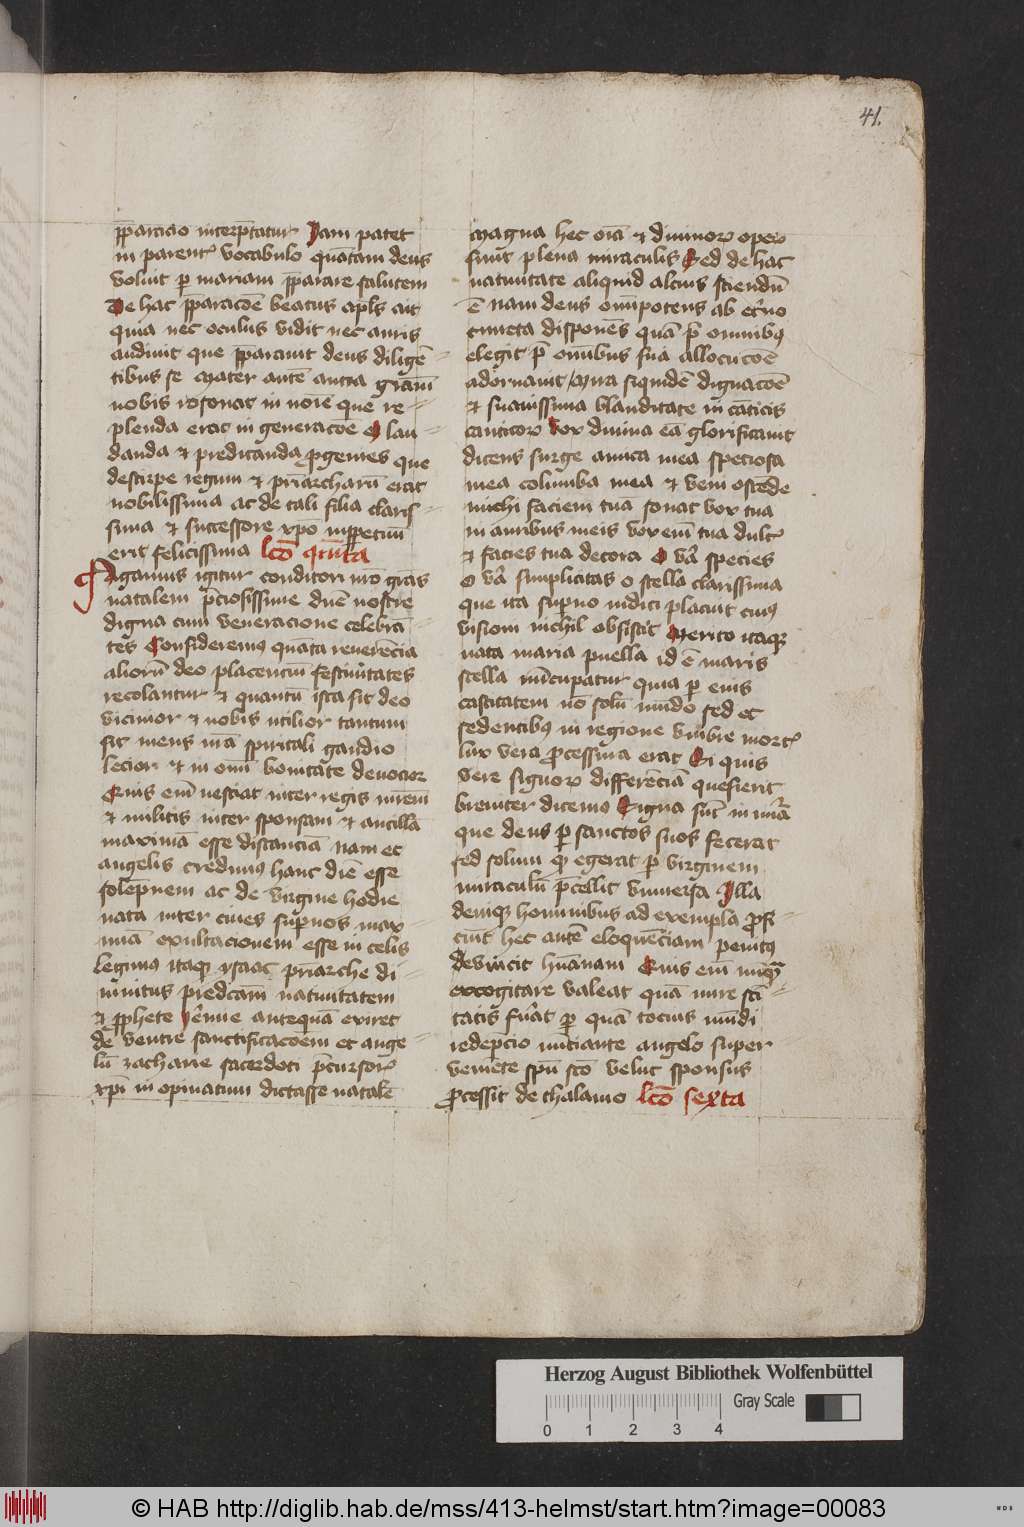 41.
p̄paracio interp̄tatur Iam patet
in parentꝰ vocabulo quātam deus
voluit ꝑ mariam p̄parare salutem
De hac p̄paracōe beatus apl̄s ait
quia nec oculus vidit nec auris
audiuit que p̄parauit deus diligē
tibus se Mater autē anna grām̄
nobis resonat in noīe que re
plenda erat in generacōe O lau
danda et predicanda ꝓgenies que
de stirpe regum et pr̄iarcharū erat
nobilissima ac de tali filia claris
sima et successore xp̄o inꝑpetuū
erit felicissima lcō qui̅ta
Agamus igitur conditori nr̄o grās
natalem p̄ciosissime dn̄e nostre
digna cum veneracione celebrā
tes Consideremꝰ quāta reuerēcia
aliorū deo placenciū festiuitates
recolantur et quantū ista sit deo
vicinior et nobis utilior tantum
sit mens nr̄a spiritali gaudio
lecior et in om̄i bonitate deuocior
Quis em̄ nesciat inter regis mr̄em
et militis inter sponsam et ancillā
maximā esse distanciā Nam et
angelis credimꝰ hanc diē esse
solēpnem ac de virgine hodie
nata inter ciues suꝑnos max
imā exultacionem esse in celis
Legimꝰ itaqꝫ ysaac pr̄iarche di
uinitus predcām̄ natiuitatem
et ꝓphete Iēmie antequā exiret
de ventre sanctificacōem et ange
lū zacharie sacerdoti p̄cursorꝰ
xp̄i in opinatum dictasse natalē
Magna hec oīa et diuinoꝝ opeꝝ
sūnt plena miraculis Sed de hac
natiuitate aliquid alcius sciendū
ē nam deus om̄ipotens ab et̄no
cuncta disponēs quā p̄ omnibꝰ
elegit p̄ om̄ibus sua allocucōe
adornauit Mira siquidē dignacōe
et suauissima blanditate in cāticis
canticoꝝ vox diuina eā glorificauit
dicens surge amica mea speciosa
mea columba mea et veni ostēde
michi faciem tuā sonat vox tua
in auribus meis vox em̄ tua dulcꝰ
et facies tua decora O va᷒ species
o va᷒ simplicitas o stella clarissima
que ita suꝑno iudici placuit cuiꝰ
visioni nichil obsistit Merito itaqꝫ
nata maria puella id ē maris
stella nūcupatur quia ꝑ eius
castitatem nō solū mūdo sed et
sedentibꝰ in regione vmbre mortꝰ
lux vera ꝓcessura erat Si quis
vere signoꝝ differēciā quesierit
breuiter dicemꝰ Signa sūt in nūa᷒
que deus ꝑ sanctos suos fecerat
sed solum qꝫ egerat ꝑ virginem
miraculū p̄cellit vniuersa Illa
deniqꝫ hominibus ad exempla ꝓfi
ciūt hec autē eloquēciam penitꝰ
deuincit hūanam Quis em̄ nūqꝫ
excogitare valeat quā mire scī
tatis fūat ꝑ quā tocius mūdi
redēpcio nūtiante angelo super
veniēte spū scō velut sponsus
ꝓcessit de thalamo lcō sexta
Herzog August Bibliothek Wolfenbüttel
Gray Scale
0 1 2 3 4
© HAB http://diglib.hab.de/mss/413-helmst/start.htm?image=00083